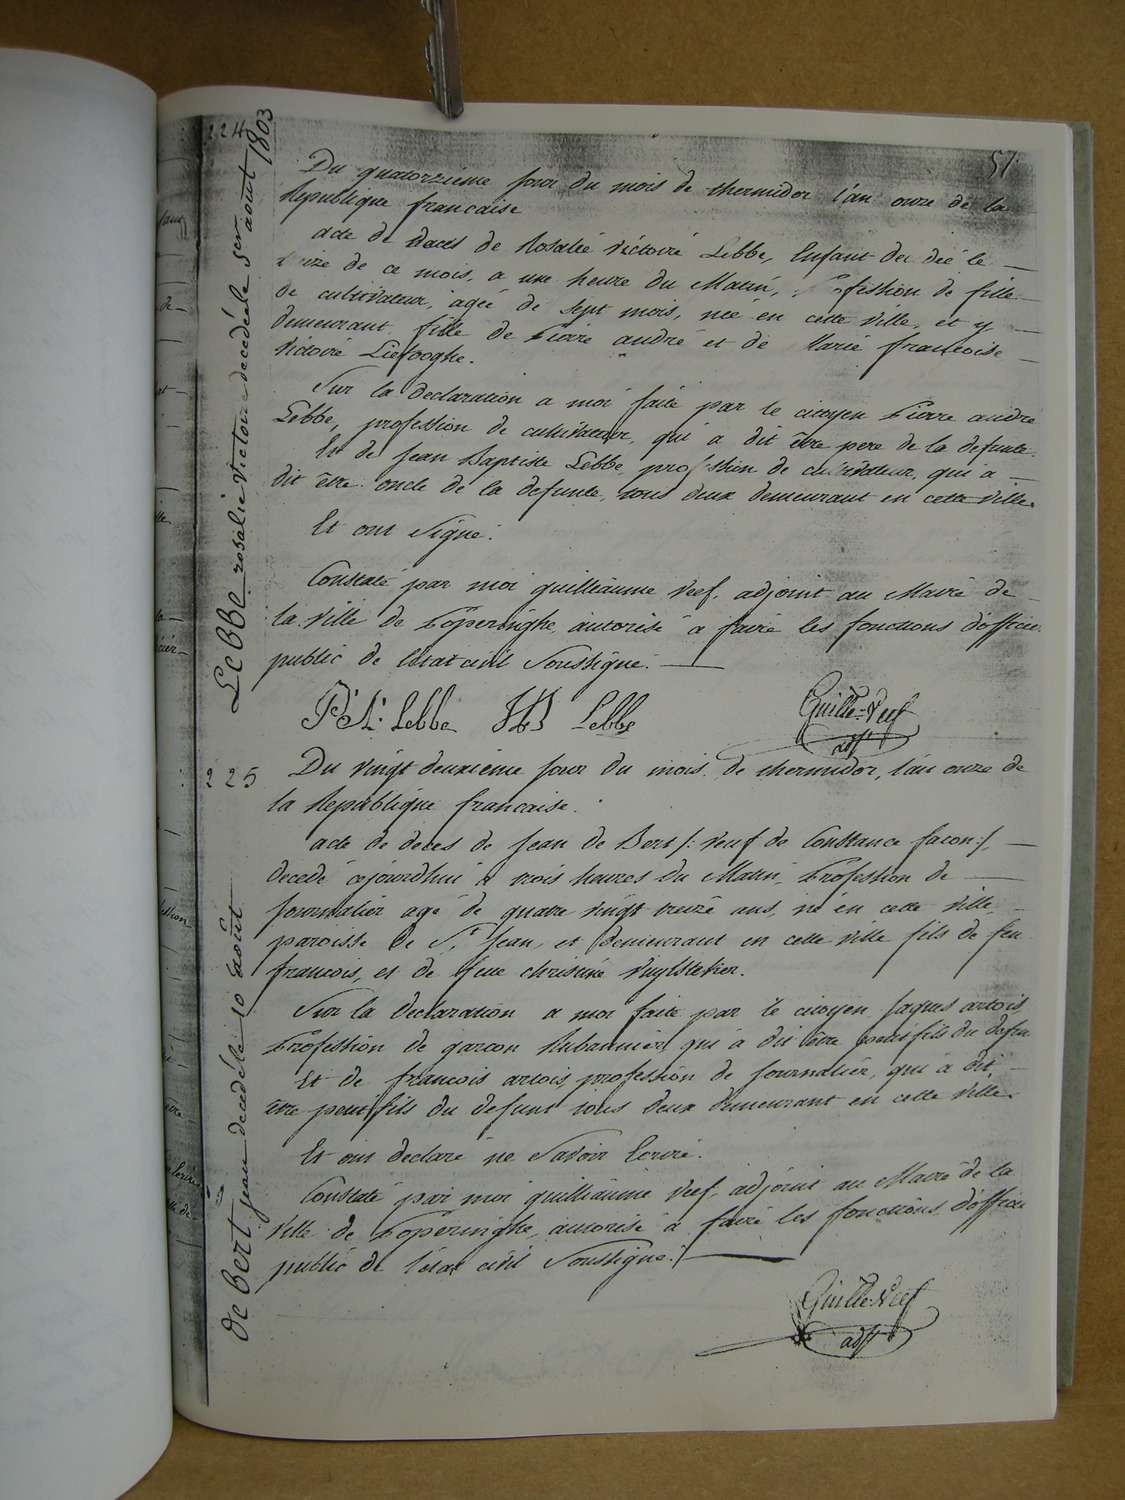 57
224
Lebbe rosalie victoire decedée le 1er aout 1803
Du quatorzieme jour du mois de thermidor l'an onze de la
Republique francaise
acte de deces de Rosalie victoire Lebbe, Enfant decedé le
de ce mois, a une heure du Matin, profession de fille
de cultivateur, agée de sept mois, née en cette ville, et y
demeurant, fille de Pierre andré et de Marie francoise
victoire Liefooghe.
Sur la declaration a moi faite par le citoyen Pierre andre
Lebbe, profession de cultivateur, qui a dit être pere de la defunte
Et de Jean Baptiste Lebbe, profession de cultivateur, qui a
dit être oncle de la defunte, tous deux demeurant en cette ville.
Et ont Signé.
Constaté par moi guilliaume Veef, adjoint au Maire de
la ville de Poperinghe, autorisé a faire les fonctions d'officier
public de l'etat civil Soussigné.
P:A: Lebbe JB Lebbe Guille-Veef
adjt
225
de bert jean decedé le 10 août
Du vingt deuxieme jour du mois de thermidor, l'an onze de
la Republique francaise.
acte de deces de Jean de Bert /: veuf de Constance facon:/,
decedé cejourdhui à trois heures du Matin, Profession de
Journalier agé de quatre vingt treize ans, né en cette ville,
paroisse de St Jean, et demeurant en cette ville fils de feu
francois, et de feue christine Vuylsteker.
Sur la declaration a moi faite par le citoyen Jaques artois
Profession de garcon Rubannier qui à dit être petit fils du defun
Et de francois artois profession de Journalier, qui à dit
être petit fils du defunt tous deux demeurant en cette ville.
Et ont declaré ne Savoir Ecrire.
Constaté par moi guilliaume Veef, adjoint au Maire de la
ville de Poperinghe, autorisé a faire les fonctions d'officier
public de l'etat civil Soussigné.
Guille-Veef
adjt